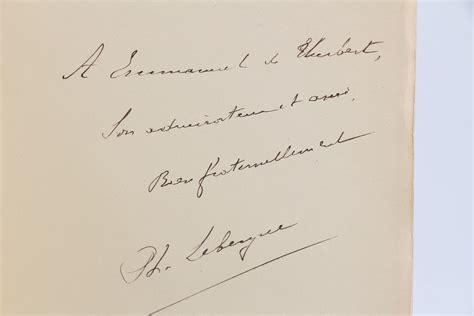 A Emmanuel de Thubert,
Son admirateur et ami,
Bien fraternellement
Ph. Lebesgue